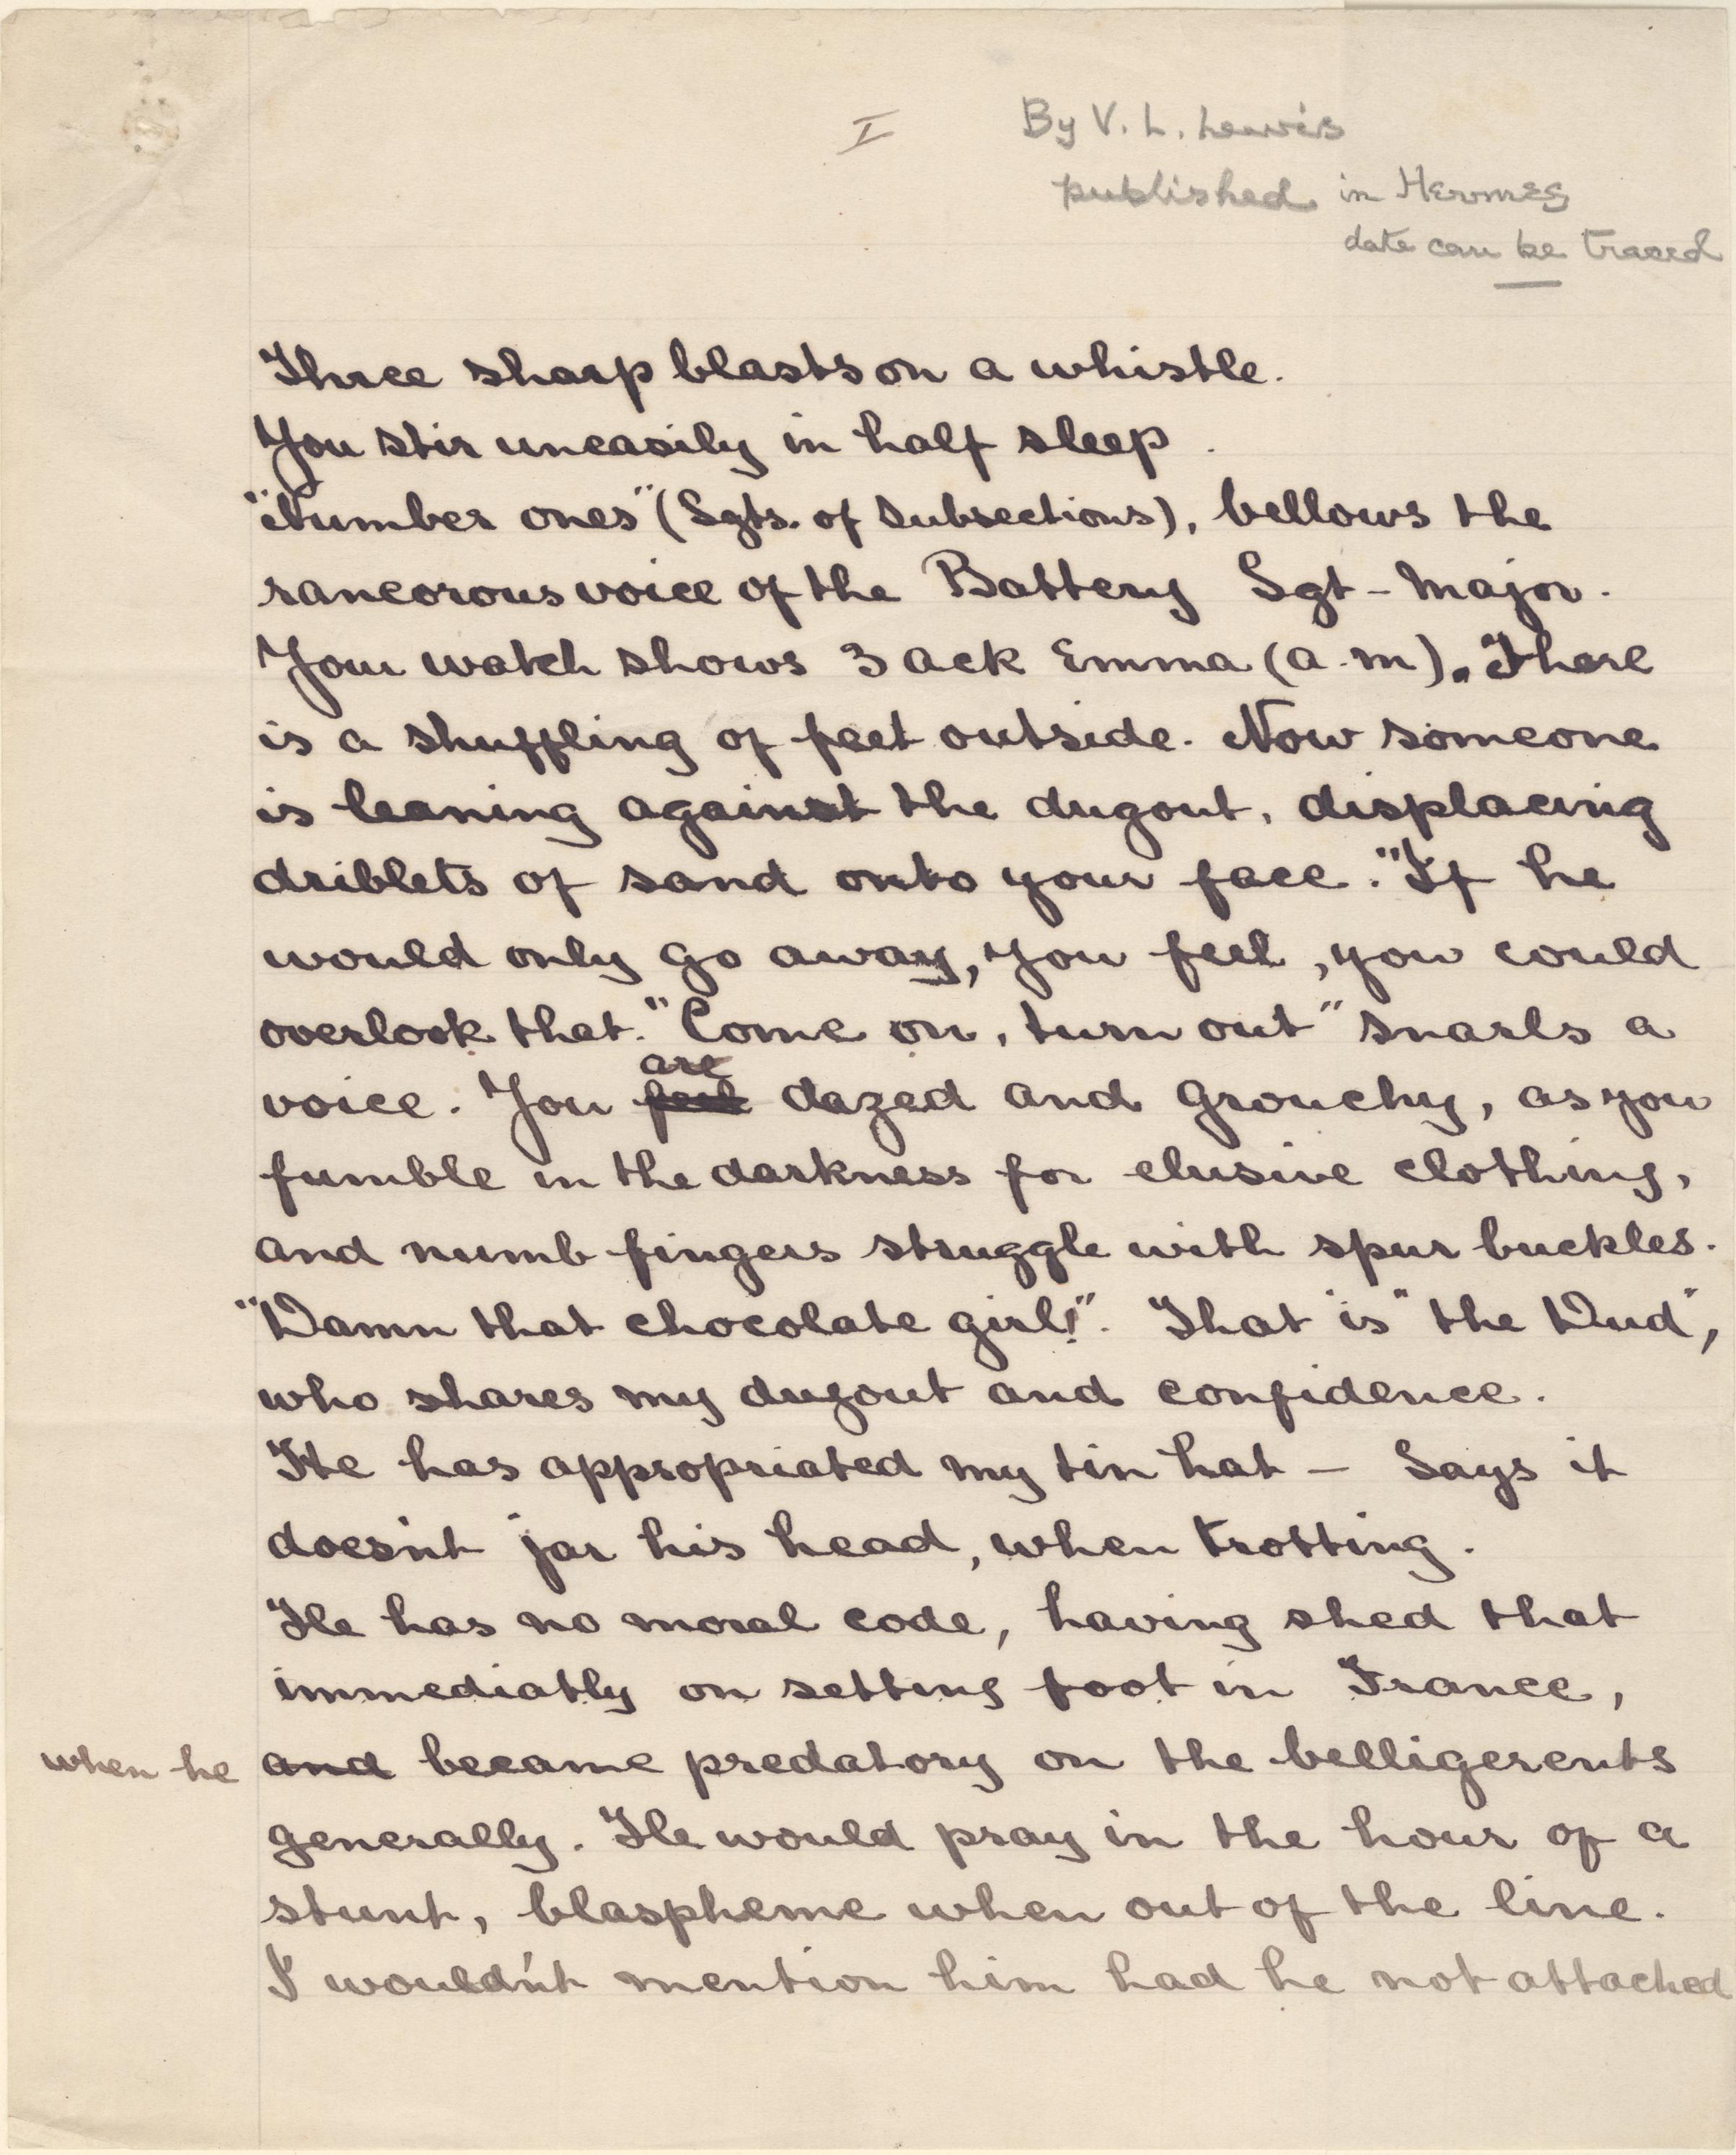 I
By V. L. Lewis
published in Hermes
date can be traced
Three sharp blasts on a whistle.
You stir uneasily in half sleep.
"Number ones" (Sgts. of Subsections), bellows the
rancorous voice of the Battery Sgt-Major.
Your watch shows 3 ack Emma (a.m). There
is a shuffling of feet outside. Now someone
is leaning against the dugout, displacing
driblets of sand onto your face. "If he
would only go away, you feel, you could
overlook that." "Come on, turn out" snarls a
are
voice. You feel dazed and grouchy, as you
fumble in the darkness for elusive clothing,
and numb fingers struggle with spur buckles.
"Damn that chocolate girl!". That is "the Dud",
who shares my dugout and confidence.
He has appropriated my tin hat – Says it
doesn't jar his head, when trotting.
He has no moral code, having shed that
immediatly on setting foot in France,
when he and became predatory on the belligerents
generally. He would pray in the hour of a
stunt, blaspheme when out of the line.
I wouldn't mention him had he not attached